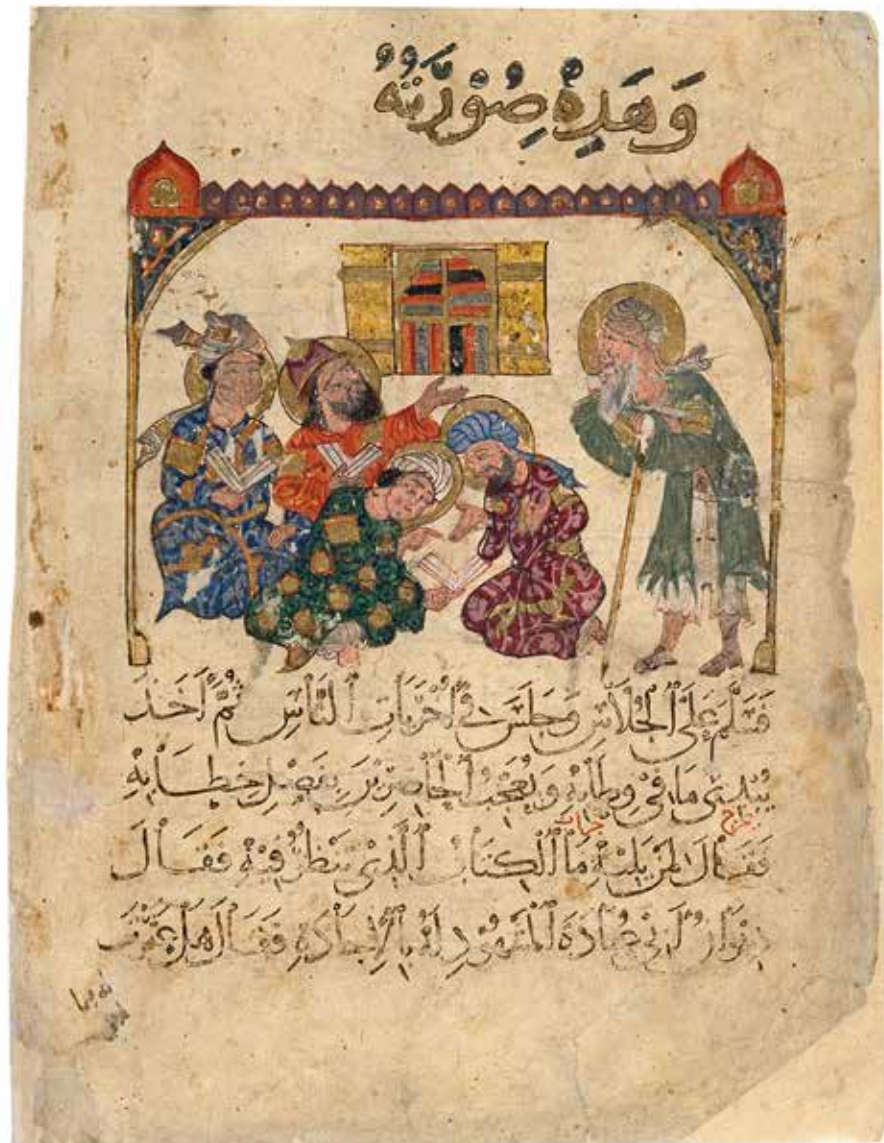 وَهَذِهْ صُوْرَتُهُ
فَسَلَّمَ عَلَى الْجُلَّاسِ وَجَلَسَ فِي أُخْرَيَاتِ النَّاسِ ثُمَّ أَخَذَ
يُبْدِي مَا فِي وِطَابِهِ وَيُعْجِبُ الْحَاضِرِيْنَ بِفَصْلِ خِطَابِهِ
فَقَالَ لِمَنْ يَلِيْهِ مَا الْكِتَابُ الَّذِيْ تَنْظُرُ فِيْهِ فَقَالَ
دِيْوَانُ أَبِيْ عُبَادَةَ الْمَشْهُوْدِ لَهُ بِالْإِجَادَةِ فَقَالَ هَلْ عَثَرْتَ